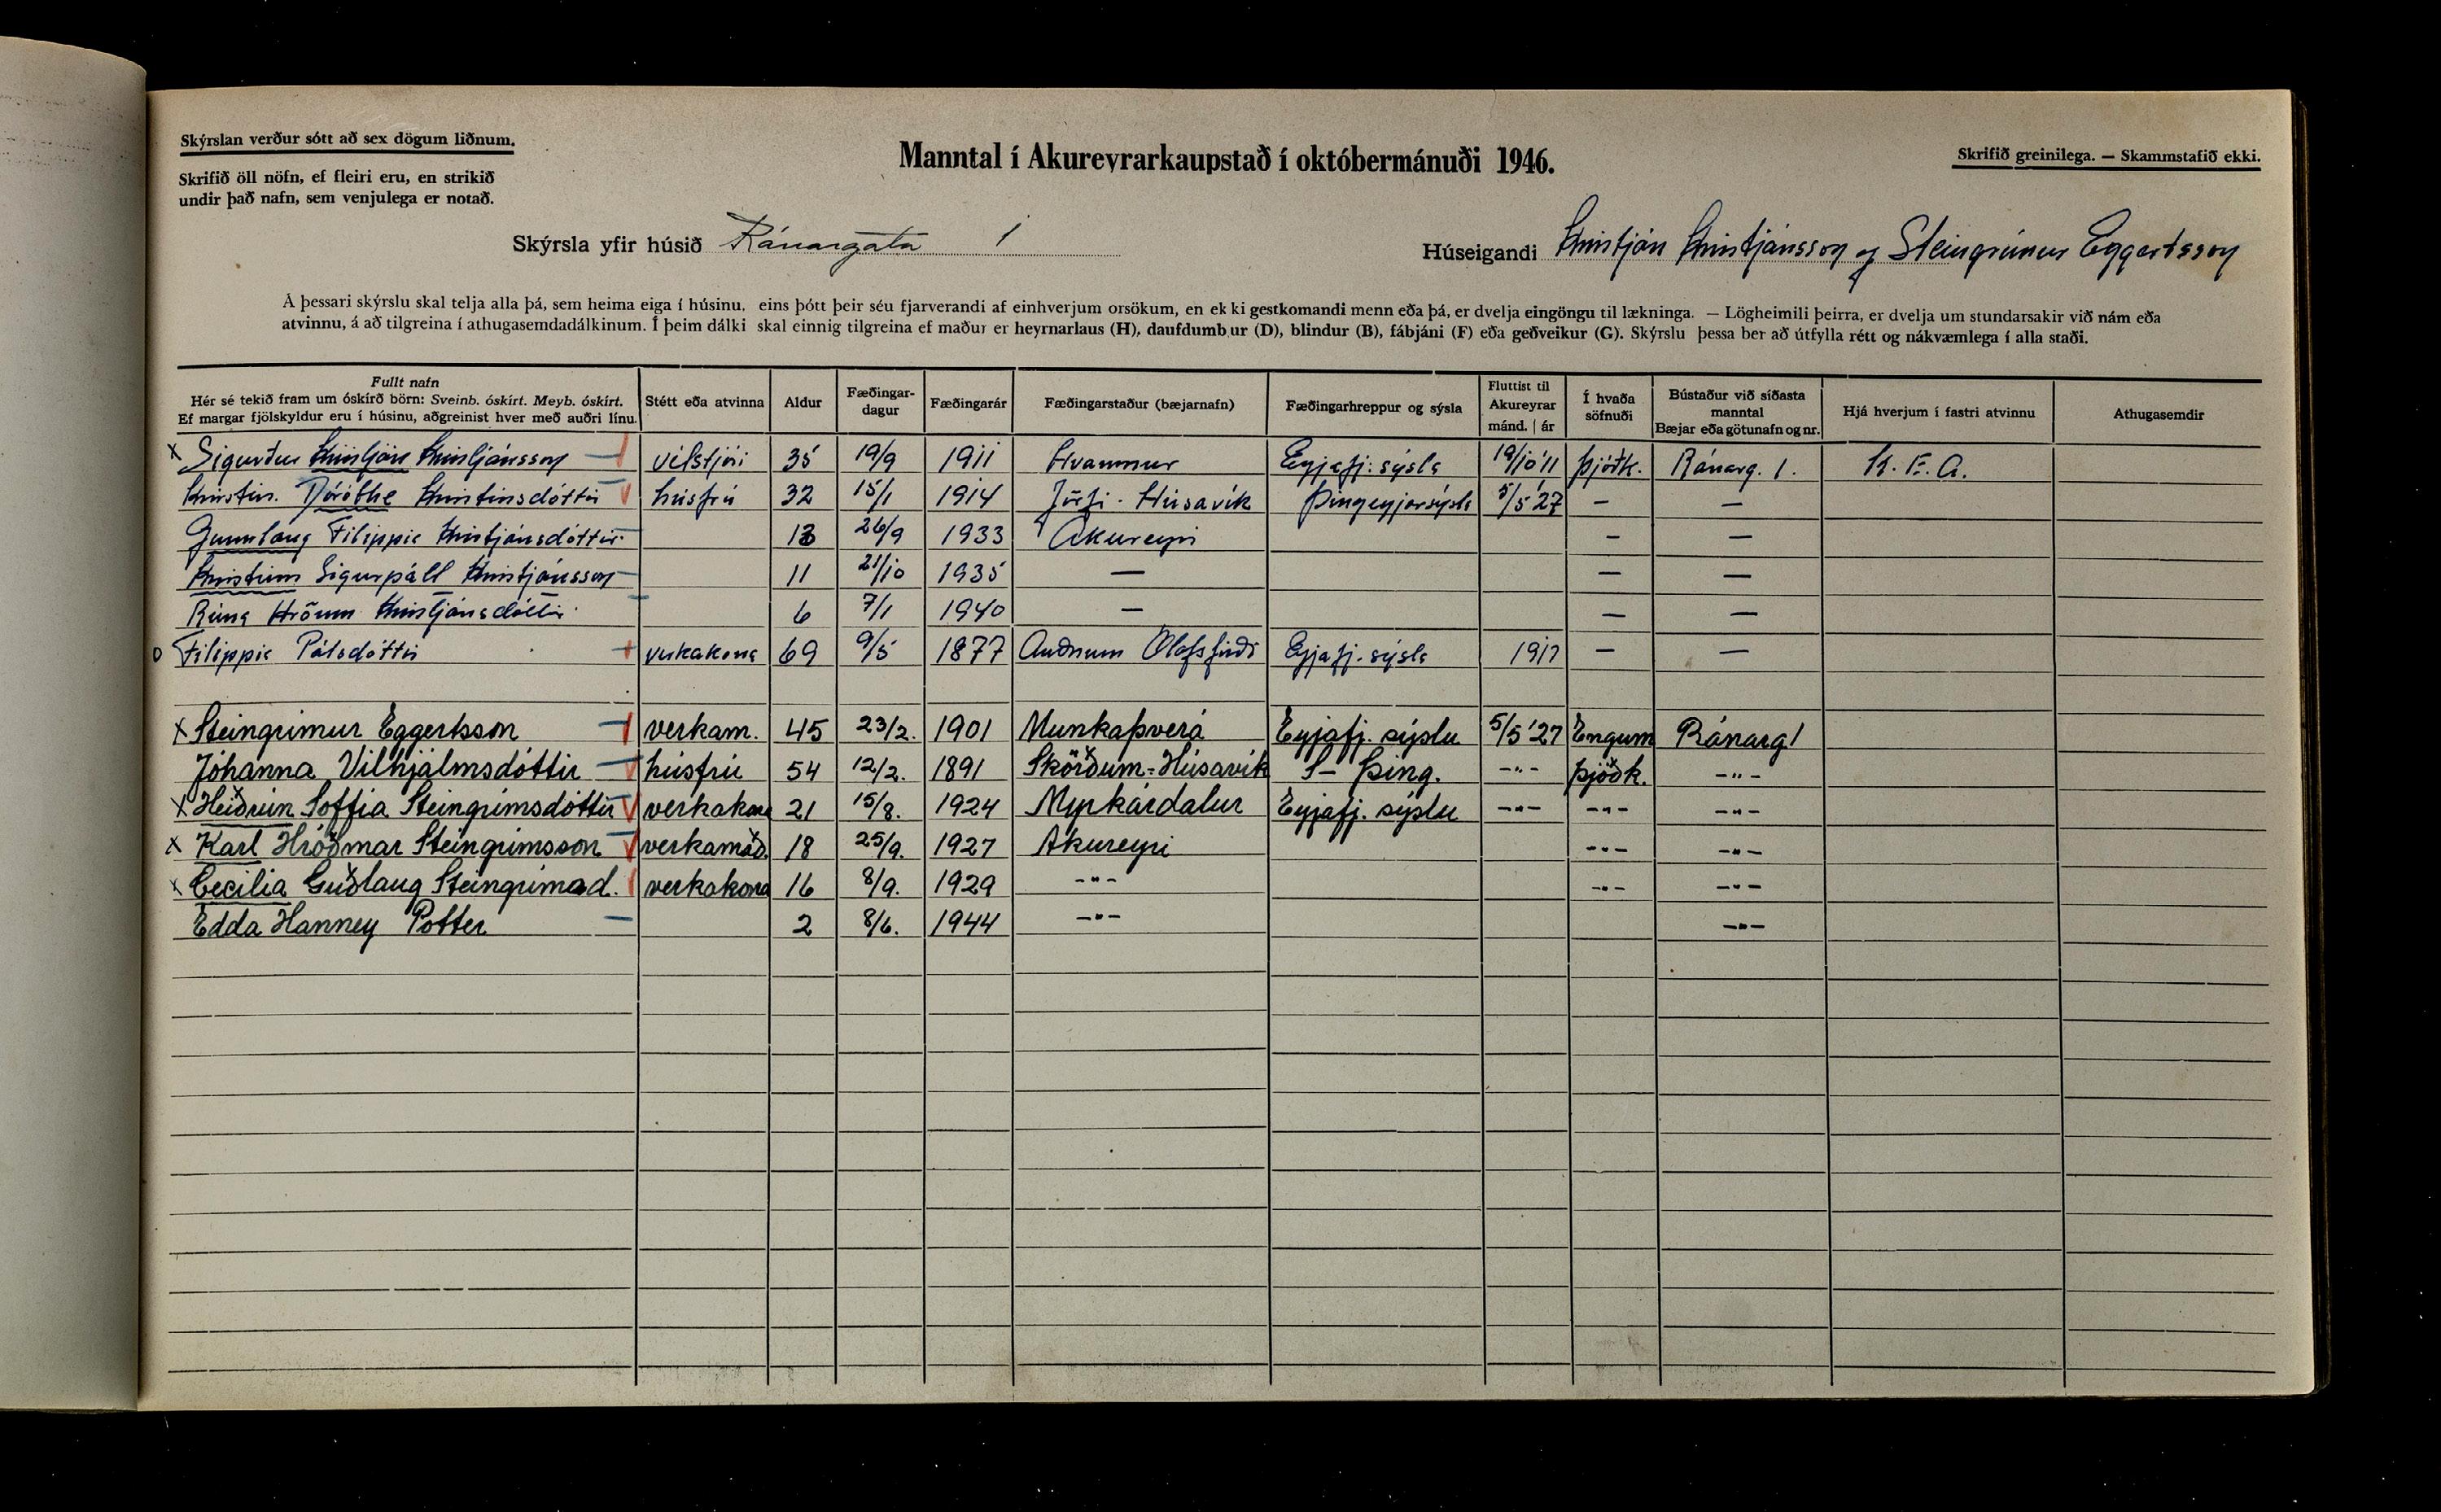 Skýrslan verður sótt að sex dögum liðnum.
Skrifið öll nöfn, ef fleiri eru, en strikið
undir það nafn, sem venjulega er notað.
Manntal í Akureyrarkaupstað í októbermánuði 1946.
Skrifið greinilega. — Skammstafið ekki.
Skýrsla yfir húsið Ránargata 1
Húseigandi Kristján Kristjánsson og Steingrímur Eggertsson
Á þessari skýrslu skal telja alla þá, sem heima eiga í húsinu, eins þótt þeir séu fjarverandi af einhverjum orsökum, en ekki gestkomandi menn eða þá, er dvelja eingöngu til lækninga. — Lögheimili þeirra, er dvelja um stundarsakir við nám eða
atvinnu, á að tilgreina í athugasemdadálkinum. Í þeim dálki skal einnig tilgreina ef maður er heyrnarlaus (H), daufdumbur (D), blindur (B), fábjáni (F) eða geðveikur (G). Skýrslu þessa ber að útfylla rétt og nákvæmlega í alla staði.
Fullt nafn
Hér sé tekið fram um óskírð börn: Sveinb. óskírt. Meyb. óskírt.
Ef margar fjölskyldur eru í húsinu, aðgreinist hver með auðri línu.
Stétt eða atvinna
Aldur
Fæðingar-
dagur
Fæðingarár
Fæðingarstaður (bæjarnafn)
Fæðingarhreppur og sýsla
Fluttist til
Akureyrar
mánd. | ár
Í hvaða
söfnuði
Bústaður við síðasta
manntal
Bæjar eða götunafn og nr.
Hjá hverjum í fastri atvinnu
Athugasemdir
x Sigurður Kristján Kristjánsson vélstjóri 35 19/9 1911 Hvammur Eyjafj. sýsla 19/10 '11 þjóðk. Ránarg. 1. K. E. A.
Kristín Dórothe Kristinsdóttir húsfrú 32 15/1 1914 Húsavík Þingeyjarsýsla 5/5 '27 — —
Gunnlaug Filippia Kristjánsdóttir 13 26/9 1933 Akureyri — —
Kristinn Sigurpáll Kristjánsson 11 21/10 1935 — — —
Rúna Hrönn Kristjánsdóttir 6 7/1 1940 — — —
o Filippia Pálsdóttir verkakona 69 9/5 1877 Auðnum Ólafsfirði Eyjafj. sýsla 1917 — —
x Steingrímur Eggertsson verkam. 45 23/2. 1901 Munkaþverá Eyjafj. sýslu 5/5 '27 Engum Ránarg 1
Jóhanna Vilhjálmsdóttir húsfrú 54 12/2. 1891 Skörðum-Húsavík S-Þing. -"- þjóðk. -"-
x Heiðrún Soffía Steingrímsdóttir verkakona 21 15/8. 1924 Myrkárdalur Eyjafj. sýslu -"- -"- -"-
x Karl Hróðmar Steingrímsson verkamað. 18 25/9. 1927 Akureyri -"- -"-
x Cecilia Guðlaug Steingrímsd. verkakona 16 8/9. 1929 -"- -"- -"-
Edda Hanney Potter 2 8/6. 1944 -"- -"-